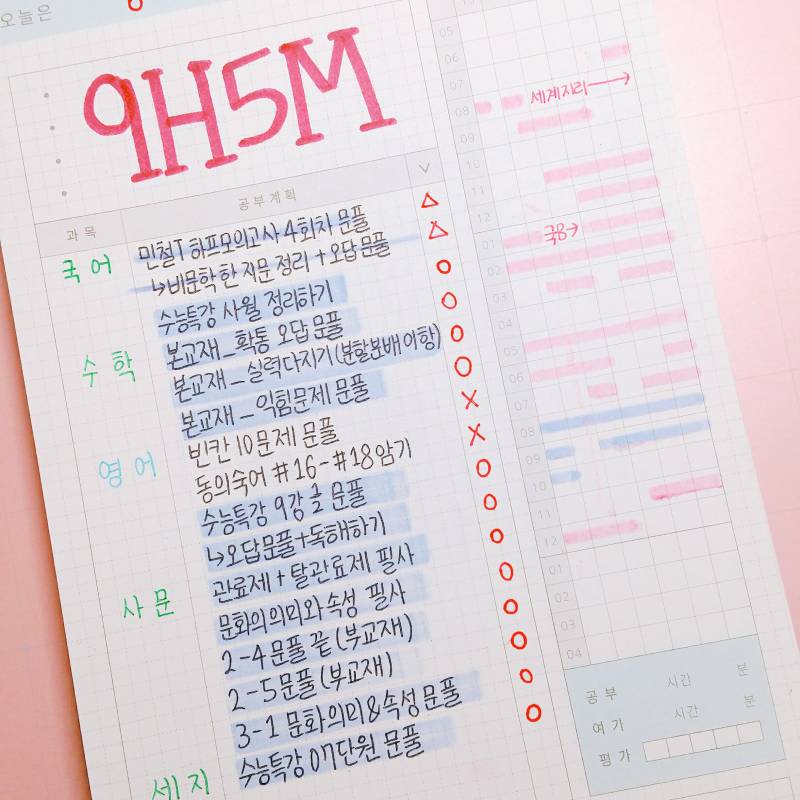 오늘은
9H5M
과목 공부계획
국어 민철T 하프모의고사 4회차 문풀 △
↳비문학 한 지문 정리 + 오답 문풀 △
수능특강 사월 정리하기 O
수학 본교재_확통 오답 문풀 O
본교재_실력다지기(분할분배이항) O
본교재_익힘문제 문풀 O
영어 빈칸 10문제 문풀 X
동의숙어 #16-#18 암기 X
수능특강 9강 ½ 문풀 O
↳오답문풀+독해하기 O
사문 관료제 + 탈관료제 필사 O
문화의 의미와 속성 필사 O
2-4 문풀 끝 (부교재) O
2-5 문풀 (부교재) O
3-1 문화의미&속성 문풀 O
세지 수능특강 07단원 문풀 O
05
06
07
세계지리→
08
09
10
11
12
01 국B→
02
03
04
05
06
07
08
09
10
11
12
01
02
03
04
공부 시간 분
여가 시간 분
평가